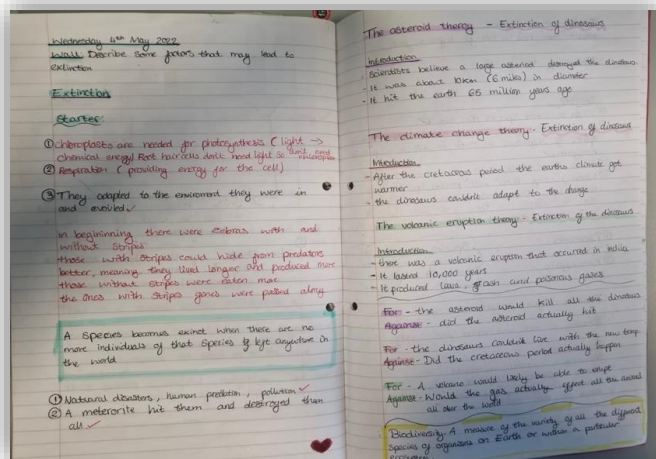 Wednesday 4th May 2022
WALT: Describe some factors that may lead to
extinction
Extinction
Starter
① chloroplasts are needed for photosynthesis (light →
chemical energy) Root hair cells don't need light so don't need chloroplasts
② Respiration (providing energy for the cell)
③ They adapted to the enviroment they were in
and evolved ✓
in beginning there were zebras with and
without stripes
those with stripes could hide from predators
better, meaning they lived longer and produced more
those without stripes were eaten more
the ones with stripes genes were passed along
A species becomes extinct when there are no
more individuals of that species left anywhere in
the world
① Natural disasters, human predation, pollution ✓
② A meterorite hit them and destroyed them
all ✓
The asteroid theory - Extinction of dinosaurs
Introduction
- Scientists believe a large asteroid destroyed the dinosaurs
- It was about 10km (6 miles) in diameter
- It hit the earth 65 million years ago
The climate change theory - Extinction of dinosaurs
Introduction
- After the cretaceous period the earths climate got
warmer
- the dinosaurs couldn't adapt to the change
The volcanic eruption theory - Extinction of the dinosaurs
Introduction
- there was a volcanic eruption that occurred in india
- It lasted 10,000 years
- It produced lava, ash and poisonous gases
For - the asteroid would kill all the dinosaurs
Against - did the asteroid actually hit
For - the dinosaurs couldn't live with the new temp
Against - Did the cretaceous period actually happen
For - A volcano would likely be able to erupt
Against - Would the gas actually effect all the
all over the world
Biodiversity - A measure of the variety of all the different
species of organisms on Earth or within a particular
ecosystem